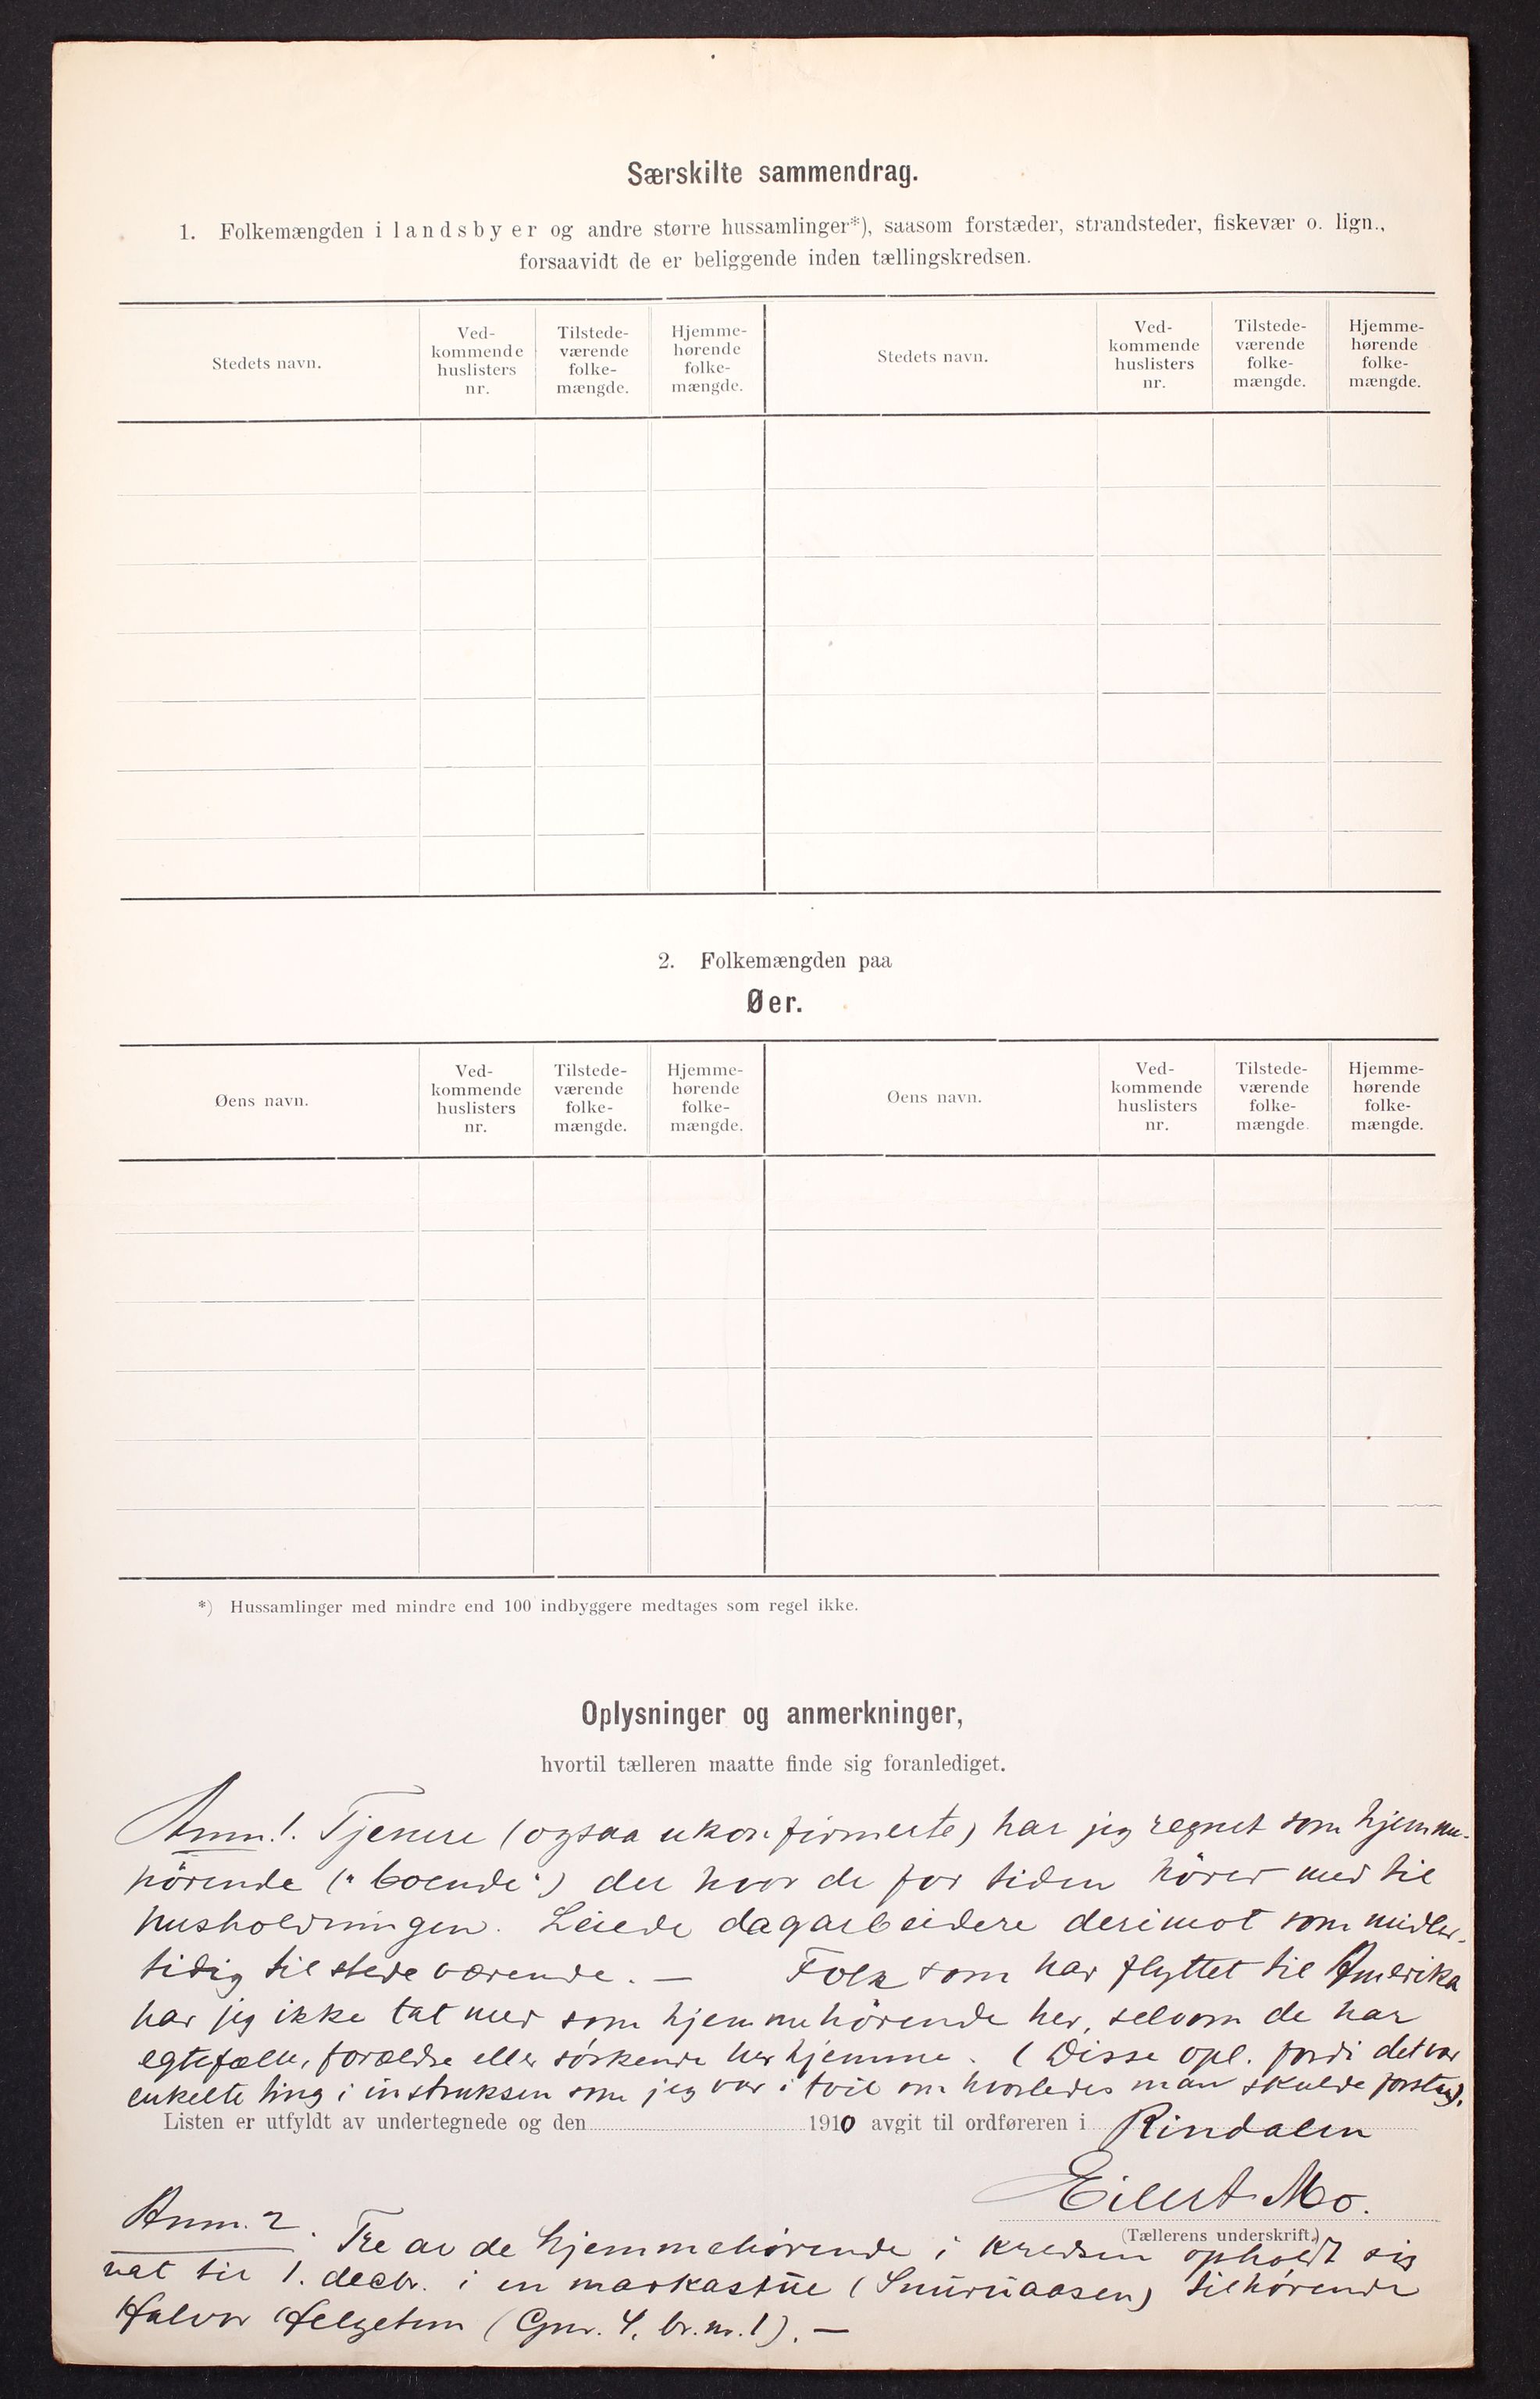 Særskilte sammendrag.
1. Folkemængden i landsbyer og andre større hussamlinger*), saasom forstæder, strandsteder, fiskevær o. lign.,
forsaavidt de er beliggende inden tællingskredsen.
Stedets navn.
Ved-
kommende
huslisters
nr.
Tilstede-
værende
folke-
mængde.
Hjemme-
hørende
folke-
mængde.
Stedets navn.
Ved-
kommende
huslisters
nr.
Tilstede-
værende
folke-
mængde.
Hjemme-
hørende
folke-
mængde.
2. Folkemængden paa
Øer.
Øens navn.
Ved-
kommende
huslisters
nr.
Tilstede-
værende
folke-
mængde.
Hjemme-
hørende
folke-
mængde.
Øens navn.
Ved-
kommende
huslisters
nr.
Tilstede-
værende
folke-
mængde.
Hjemme-
hørende
folke-
mængde.
*) Hussamlinger med mindre end 100 indbyggere medtages som regel ikke.
Oplysninger og anmerkninger,
hvortil tælleren maatte finde sig foranlediget.
Anm. 1. Tjenere (ogsaa ukonfirmerte) har jeg regnet som hjemme-
hörende ("boende") der hvor de for tiden hörer med til
husholdningen. Leiede dagarbeidere derimot som midler-
tidig tilstedeværende. — Folk som har flyttet til Amerika
har jeg ikke tat med som hjemmehörende her, selvom de har
egtefælle, forældre eller söskende her hjemme. (Disse opl. fordi det var
enkelte ting i instruksen som jeg var i tvil om hvorledes man skulde forstaa).
Listen er utfyldt av undertegnede og den 1910 avgit til ordføreren i Rindalen
Eilert Mo.
(Tællerens underskrift.)
Anm. 2. Tre av de hjemmehörende i kredsen opholdt sig
nat til 1. decbr. i en markastue (Snurruaasen) tilhörende
Halvor Helgetun (Gnr. 4, br.nr. 1). —